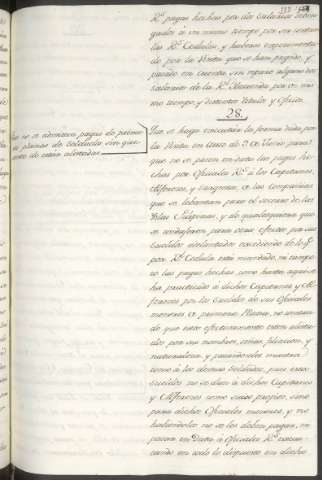 R.s pagas hechas por dos salarios deven-
gados à un mismo tiempo por un
las R.s Cedulas, y haberse experimenta-
do por la Visita que se han pagado, y
pasado en cuenta sin reparo algunos dos
salarios de la R.l Hacienda por un mis-
mo tiempo, y distintos titulos y oficios.
28.
Que no se admitan pagas de prime-
ras planas de Soldados sin que
conste de estar alistados.
Que se haga executar la forma dada por
la Visita en auto de de Junio para
que no se pasen en data las pagas he-
chas por Oficiales R.s à los Capitanes,
Alfereces, y Sargentos, de las Compañias
que se lebantan para el socorro de las
Yslas Filipinas, y de qualesquiera que
se condugeren para otros efectos por sus
sueldos adelantados excediendo de lo q.e
por R.l Cedula está mandado, ni tampo-
co las pagas hechas como hasta aqui se
ha practicado à dichos Capitanes y Al-
fereces por los sueldos de sus Oficiales
menores, ò primeras Planas, no constan-
do que estos efectivamente esten alista-
dos por sus nombres, señas, filiacion, y
naturaleza, y pasandoles muestra
como à los demas Soldados, pues estos
sueldos no se dan à dichos Capitanes
y Alfereces como suyos propios, sino
para dichos Oficiales menores, y no
habiendolos no se les deben pagar, ni
pasar en Data à Oficiales R.s
cando en todo lo dispuesto en dicho